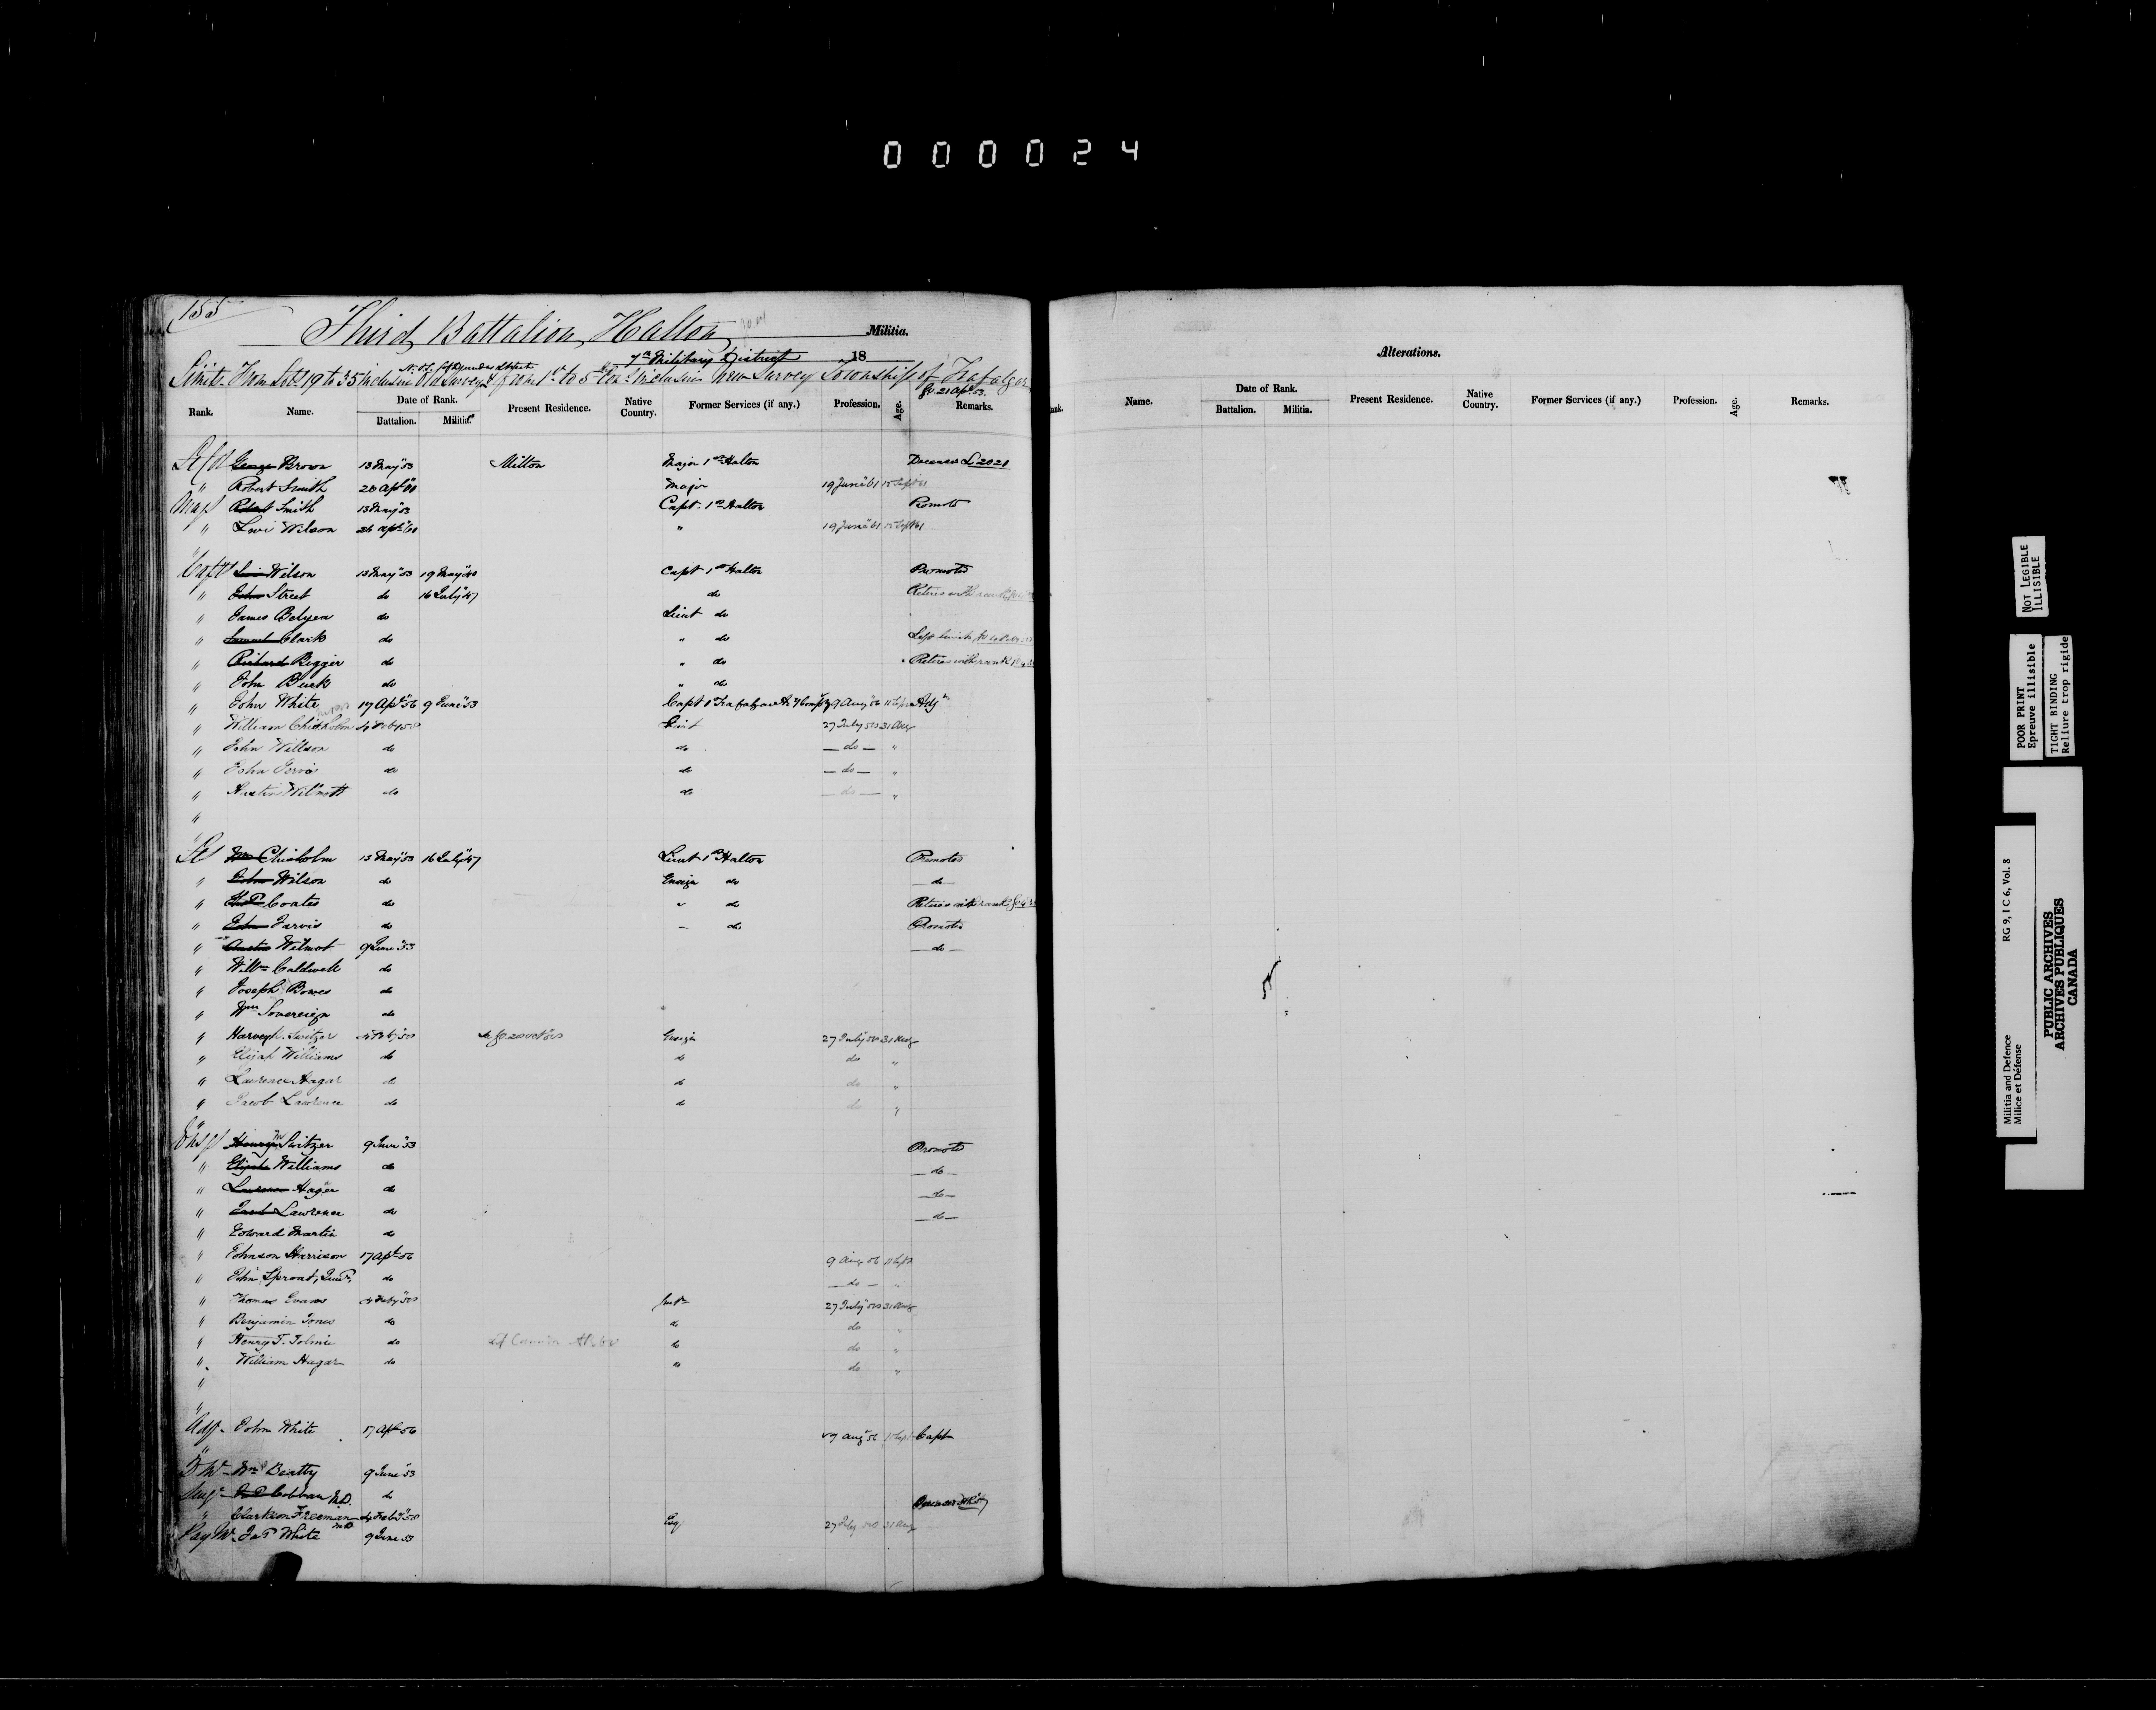 000024
155
Third Battalion Halton Militia.
7th Military District 18
N. W. of Dundas Street
Limits. From Lots 19 to 35 inclusive Old Survey & from 1st to 5th Con. inclusive New Survey Township of Trafalgar
G.O. 21 Apl. 53
Rank. Name. Date of Rank. Battalion. Militia. Present Residence. Native Country. Former Services (if any.) Profession. Age. Remarks.
Lt Col George Brown 13 May 53 Milton Major 1st Halton Deceased
" Robert Smith Major 19 June 61
Major Robert Smith 13 May 53 Capt. 1st Halton Promoted
" Levi Wilson 26 Apl 60 " 19 June 61
Capt Levi Wilson 13 May 53 19 May 40 Capt 1st Halton Promoted
" John Street do 16 July 47 do Retires with rank
" James Belyea do Lieut do
" Samuel Clark do " do Left limits
" Richard Bigger do " do Retires with rank
" John Buck do " do
" John White 17 Apl 56 9 June 53 9 Aug 56 11 Sep Adjt
" William Chisholm 4 Feby 58 Lieut 27 July 58 31 Aug
" John Willson do do do "
" John Jervis do do do "
" Austin Wilmott do do do "
"
Lt Wm Chisholm 13 May 53 16 July 47 Lieut 1st Halton Promoted
" John Wilson do Ensign do do
" Coates do " do Retires with rank
" John Jarvis do " do Promoted
" Austin Wilmot 9 June 53 do
" Willm Caldwell do
" Joseph Bowes do
" Wm Sovereign do
" Harvey Switzer 4 Feby 58 Ensign 27 July 58 31 Aug
" Elijah Williams do do do "
" Lawrence Hagar do do do "
" Jacob Lawrence do do do "
Ens Henry Switzer 9 June 53 Promoted
" Elijah Williams do do
" Lawrence Hager do do
" Jacob Lawrence do do
" Edward Martin do
" Johnson Harrison 17 Apl 56 9 Aug 56 11 Sept
" John Sproat, Junr. do do "
" Thomas Evans 4 Feby 58 27 July 58 31 Aug
" Benjamin Jones do do do "
" Henry T. Tolmie do Left Canada do do "
" William Hagar do do do "
"
"
Adjt. John White 17 Apl 56 9 Aug 56 Capt
Q M Wm Beatty 9 June 53
Surgn Cobban M.D. do
" Clarkson Freeman MD 4 Feby 58 Esq 27 July 58 31 Aug
Pay M. Jas White 9 June 53
Alterations.
ank. Name. Date of Rank. Battalion. Militia. Present Residence. Native Country. Former Services (if any.) Profession. Age. Remarks.
NOT LEGIBLE
ILLISIBLE
POOR PRINT
Epreuve illisible
TIGHT BINDING
Reliure trop rigide
Militia and Defence
Milice et Défense
RG 9, I C 6, Vol. 8
PUBLIC ARCHIVES
ARCHIVES PUBLIQUES
CANADA